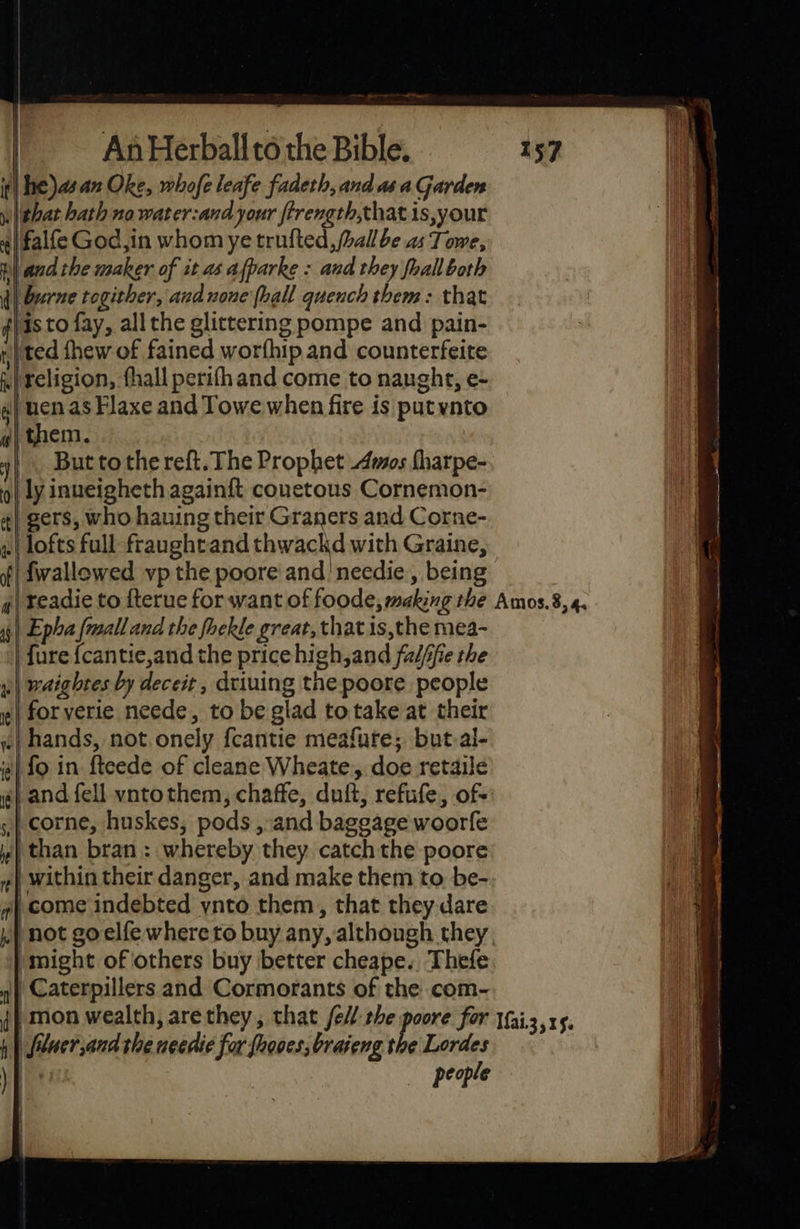 An Herball to the Bible. 157
he) as an Oke, whoſe leafe fadeth, and as a Garden
that hath no water: and your ſtrength, that is, your
falſe God, in whom ye truſted, ſhall be as Towe,
and the maker of it as a ſparke : and they ſhall both
burne togither, and none ſhall quench them : that
is to ſay, all the glittering pompe and pain-
ted ſhew of fained worſhip and counterfeite
religion, ſhall periſh and come to naught, e-
uen as Flaxe and Towe when fire is put vnto
them.
But to the reſt. The Prophet Amos ſharpe-
ly inueigheth againſt couetous Cornemon-
gers, who hauing their Graners and Corne-
lofts full fraught and thwackd with Graine,
ſwallowed vp the poore and needie, being
readie to ſterue for want of foode, making the Amos.8,4.
Epha ſmall and the ſhekle great, that is, the mea-
ſure ſcantie, and the price high, and falſifie the
waightes by deceit, driuing the poore people
for verie neede, to be glad to take at their
hands, not onely ſcantie meaſure; but al-
ſo in ſteede of cleane Wheate, doe retaile
and ſell vnto them, chaffe, duſt, refuſe, of-
corne, huskes, pods, and baggage woorſe
than bran : whereby they catch the poore
within their danger, and make them to be-
come indebted vnto them, that they dare
not go elſe where to buy any, although they
might of others buy better cheape. Theſe
Caterpillers and Cormorants of the com-
mon wealth, are they, that ſell the poore for Iſai.3,15.
ſiluer, and the needie for ſhooes, braieng the Lordes
people